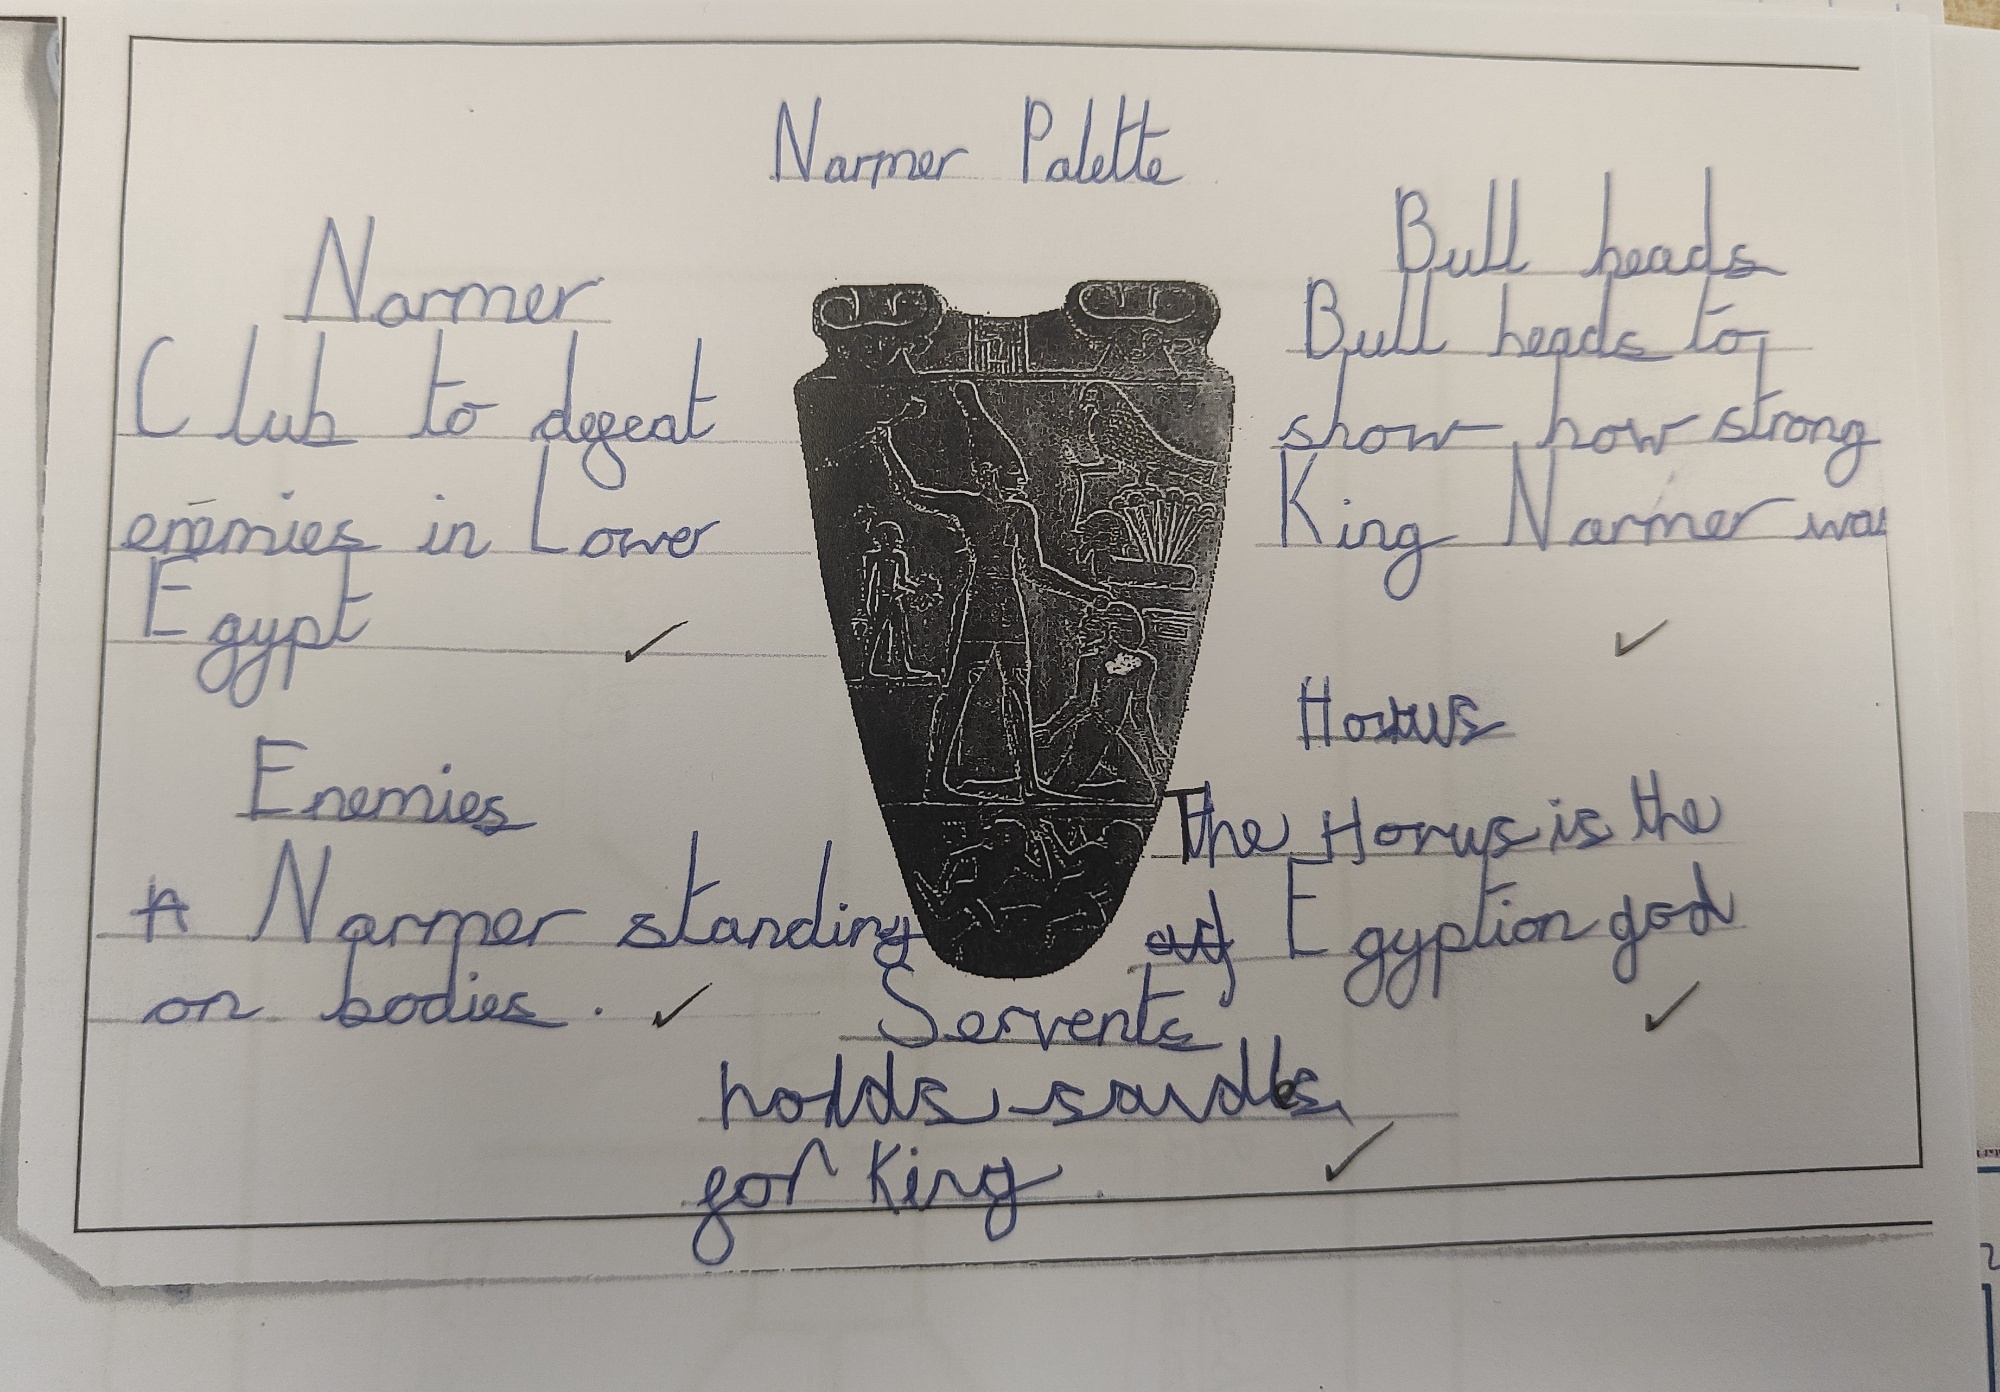 Narmer Palette
Narmer
Club to defeat
enemies in Lower
Egypt
Enemies
Narmer standing
on bodies.
Bull heads
Bull heads to
show how strong
King Narmer was
Horus
The Horus is the
Egyption god
Servents
holds sandles
for King.